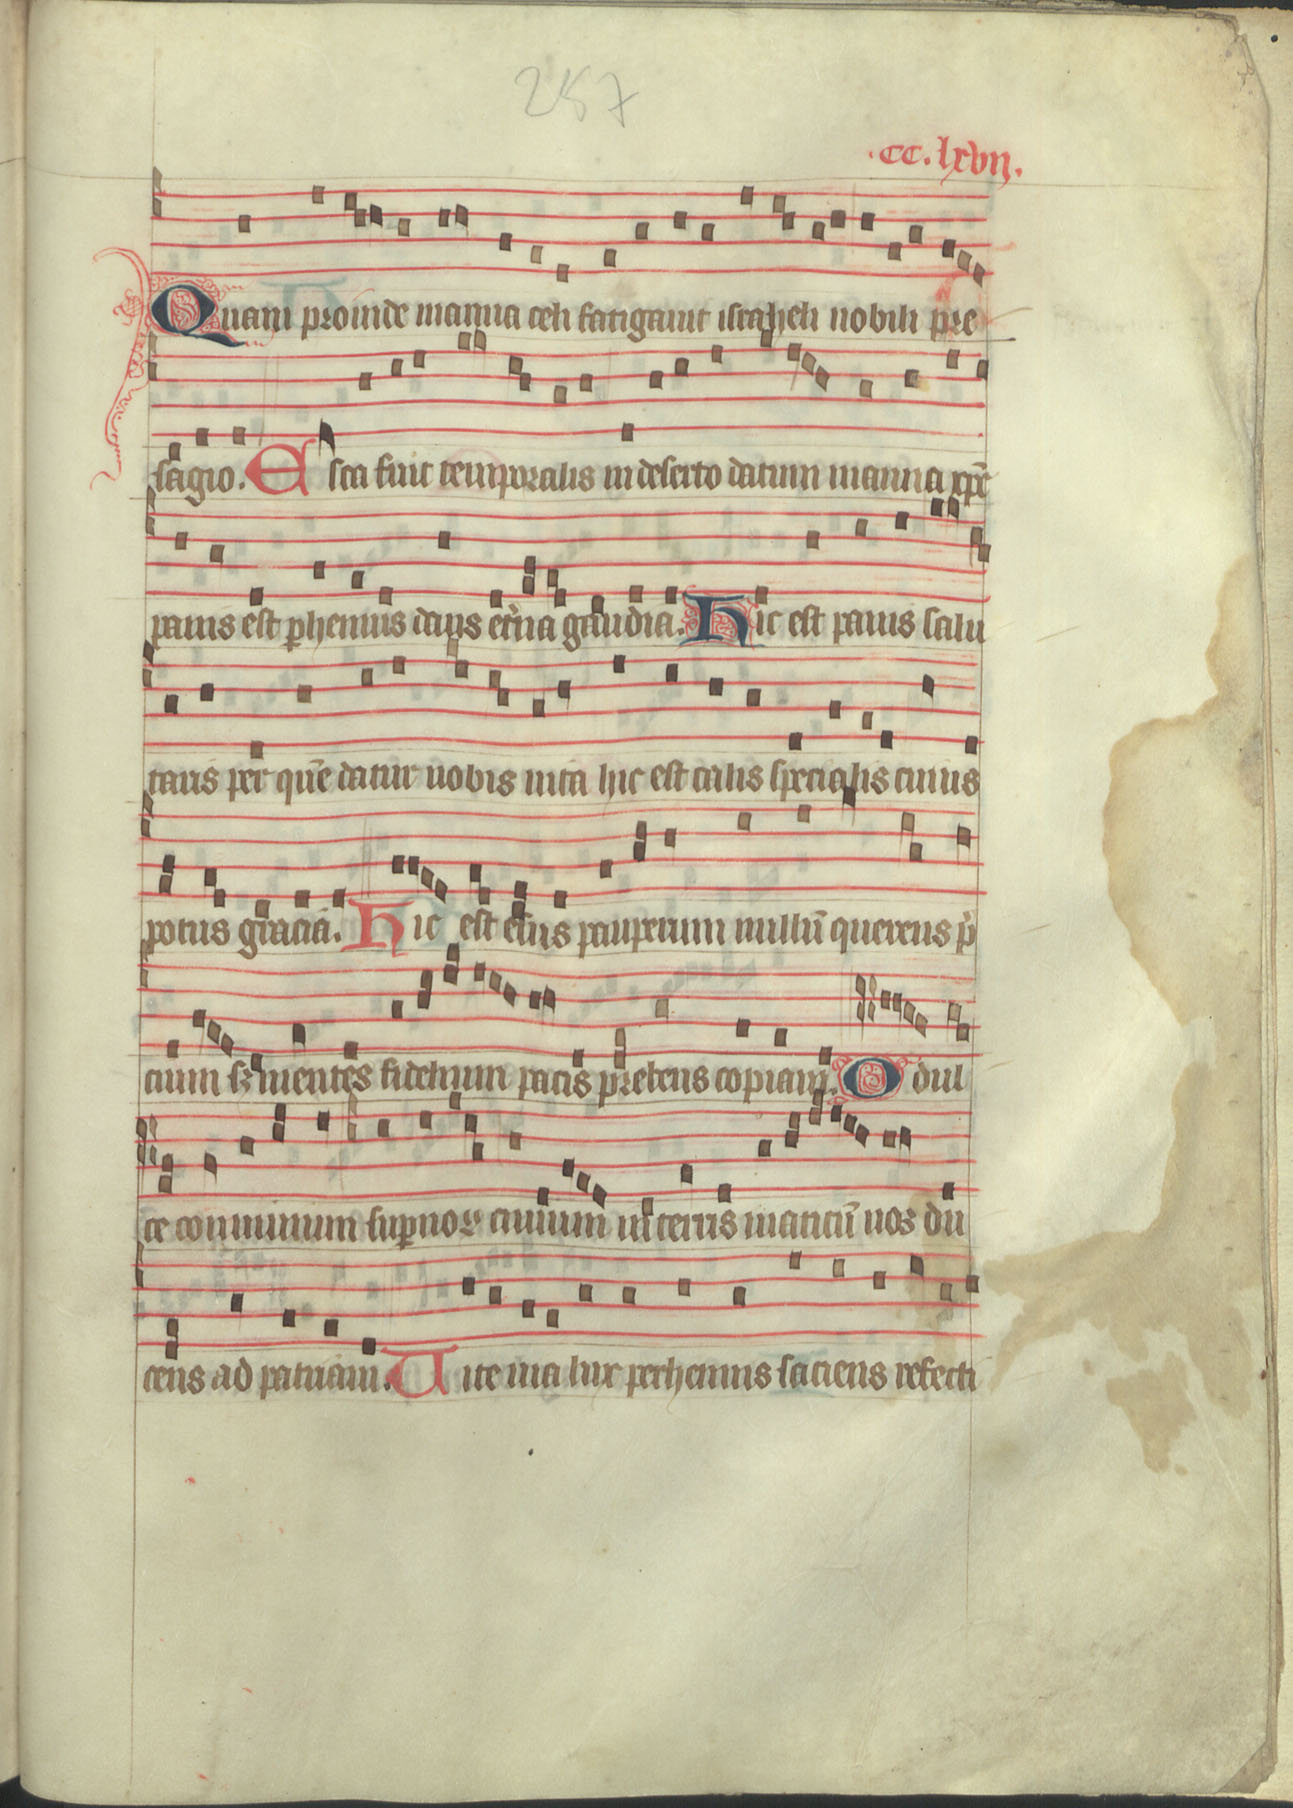 257
.cc.lxvii.
Quam proinde manna celi fatigauit israheli nobili pre
sagio. Esca fuit temporalis in deserto datum manna xpc̄
panis est ꝑhennis dans et̄na gaudia. Hic est panis salu
taris per quē datur nobis uita hic est calis specialis cuius
potus gracia. Hic est cibus pauperum nullū querens p̄
cium sꝫ mentes fidelium pacis prebens copiam. O dul
ce conuiuium suꝑnoꝝ ciuium in terris uiaticū nos du
cens ad patriam. Uite uia lux perhennis saciens refecti